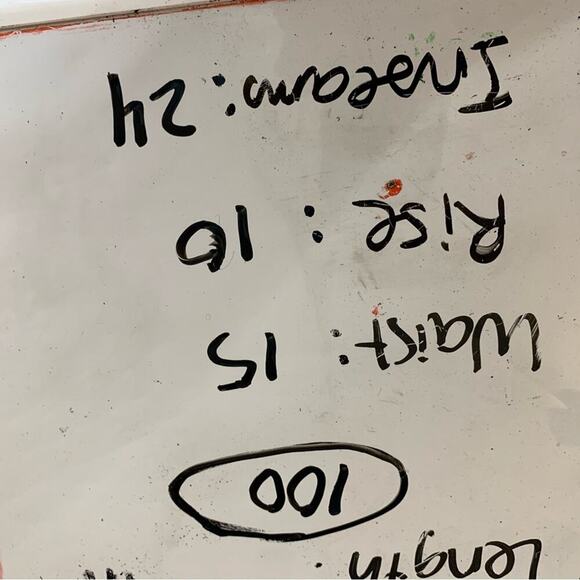 Length :
100
Waist: 15
Rise: 10
Inseam: 24